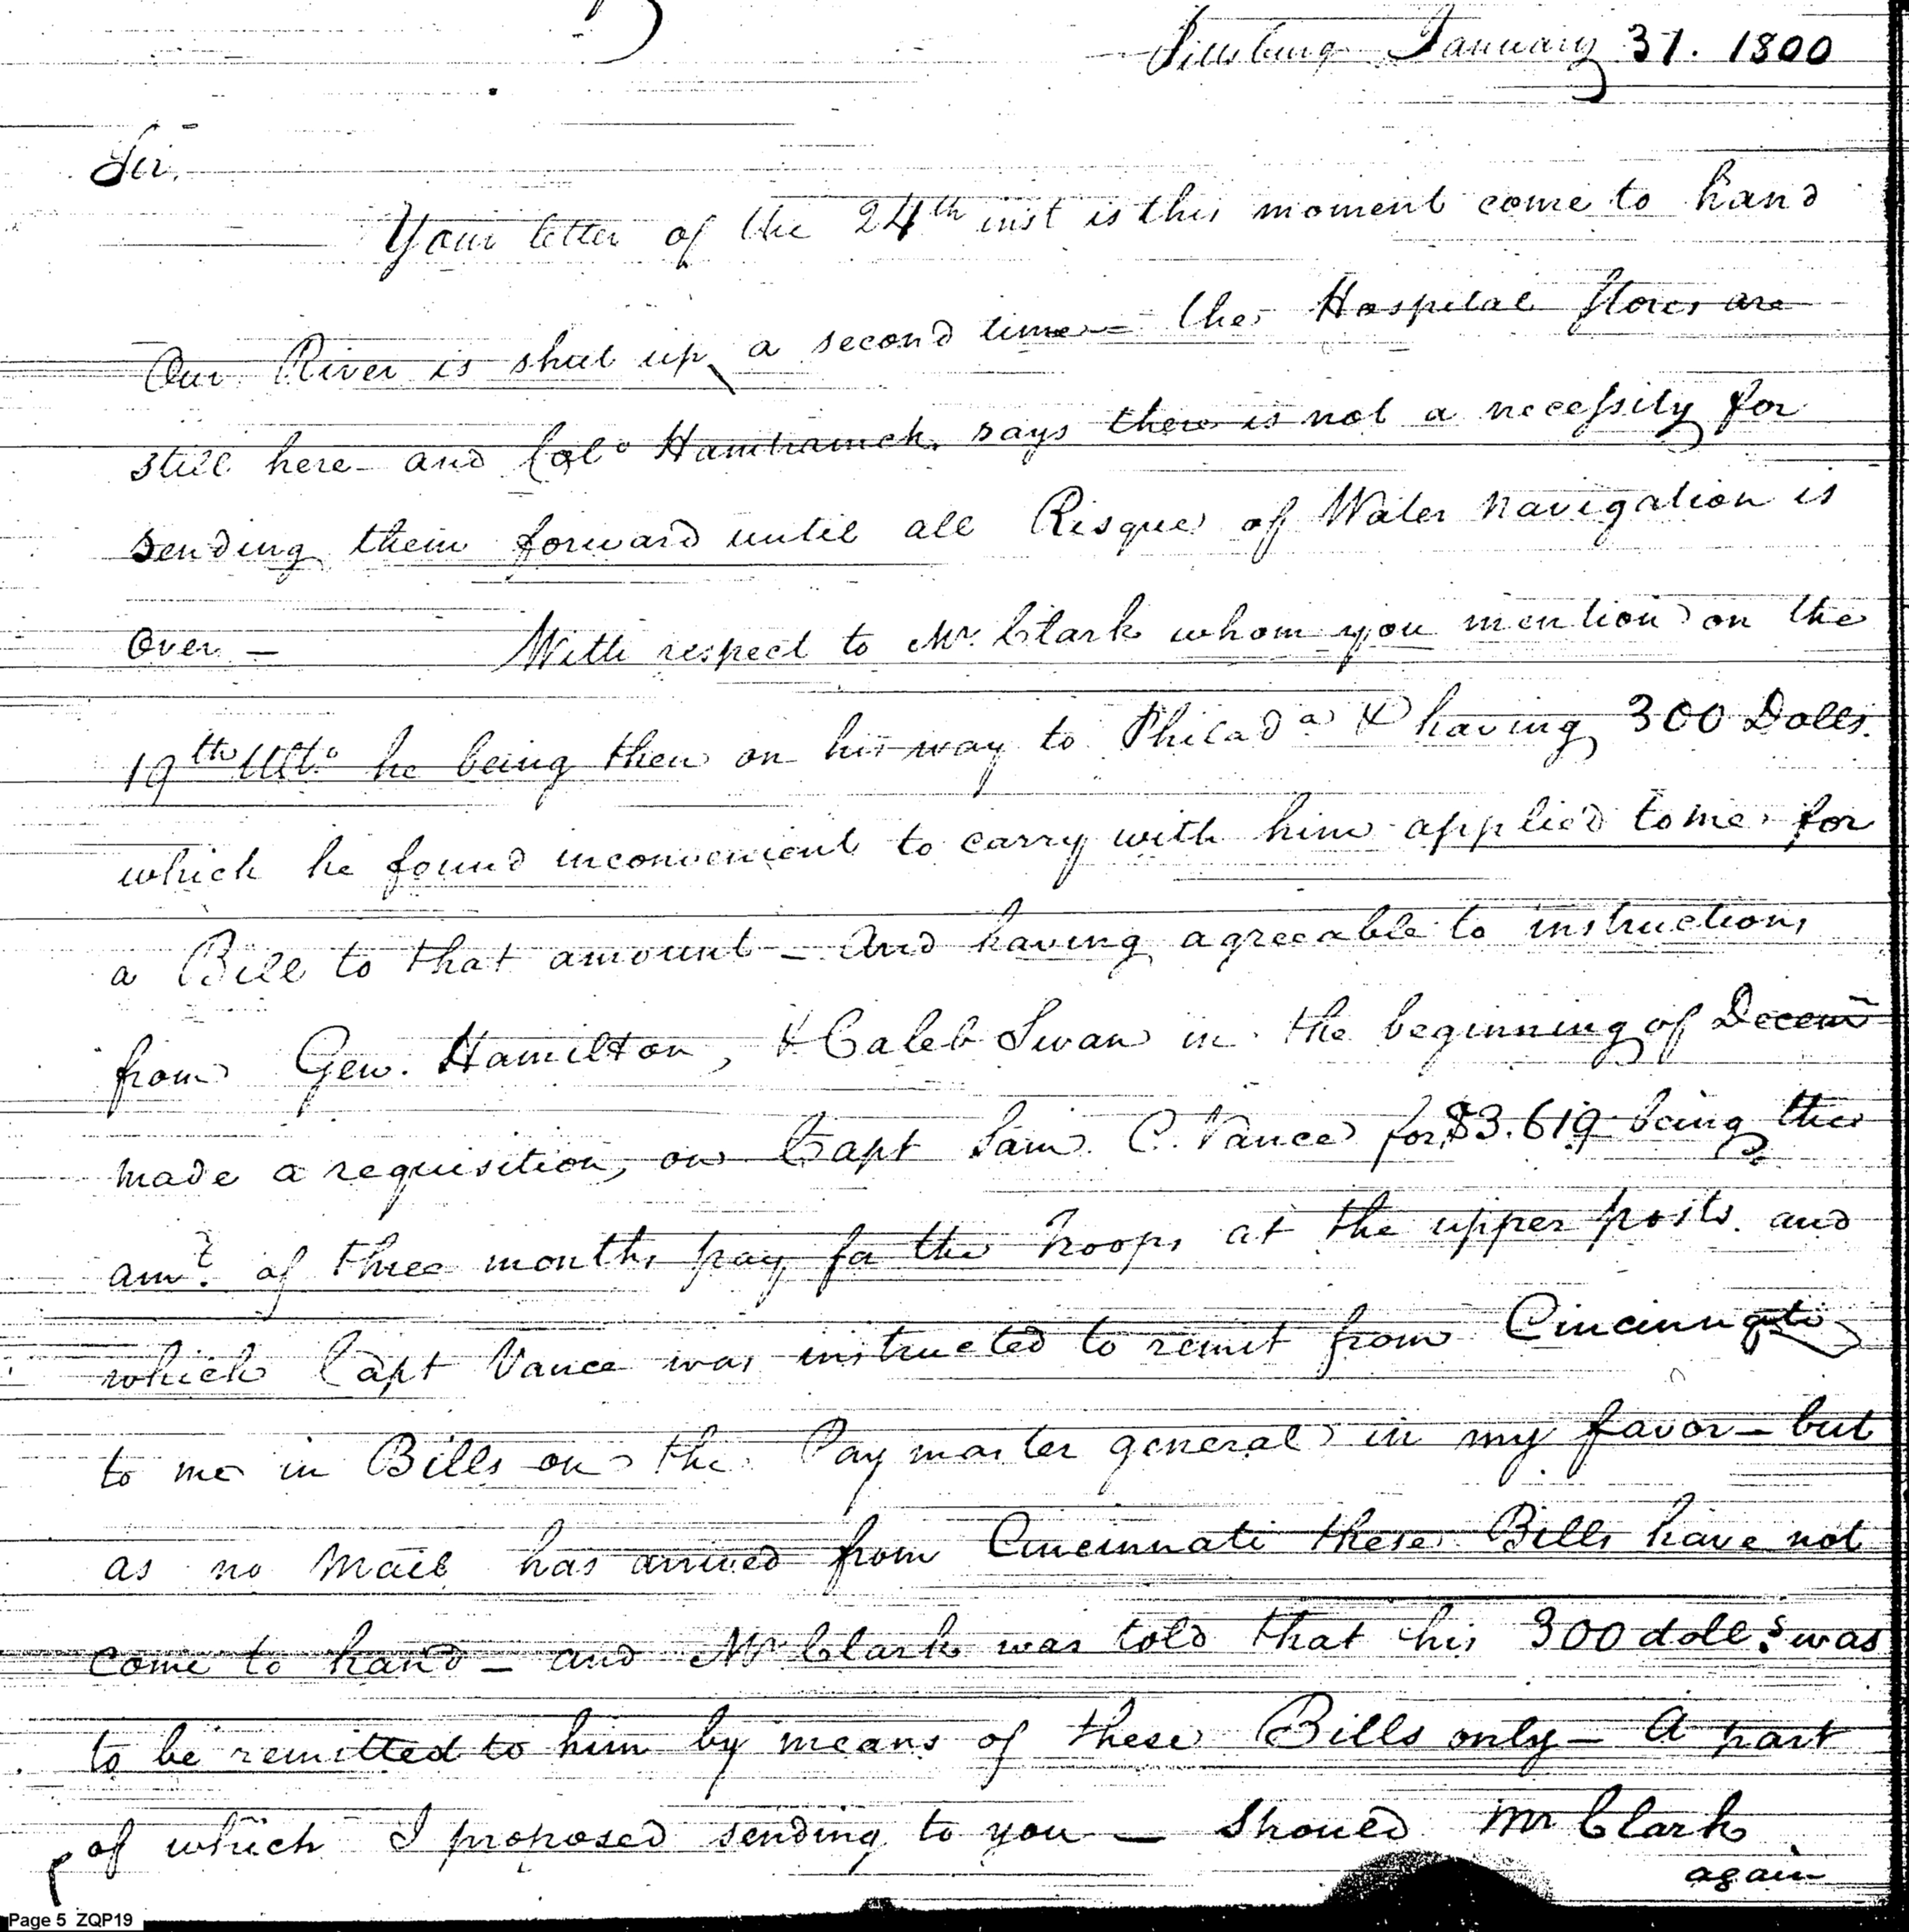 Pittsburg January 31. 1800
Sir,
Your letter of the 24th inst is this moment come to hand
Our River is shut up, a second time – the Hospital stores are
still here – and Colo Hamtramck. says there is not a necessity for
sending them forward until all Risque of Water navigation is
over – With respect to Mr. Clark whom you mention on the
19th Ulto. he being then on his way to Philada. & having 300 Dolls.
which he found inconvenient to carry with him applied to me for
a Bill to that amount – And having agreeable to instructions
from Gen. Hamilton, & Caleb Swan in the beginning of Decem
made a requisition, on Capt Sam. C. Vance for $3.619 being the
amt. of three months pay for the Troops at the upper posts. and
which Capt Vance was instructed to remit from Cincinnati
to me in Bills on the Paymaster general in my favor – but
as no Mail has arrived from Cincinnati these Bills have not
come to hand – and Mr Clark was told that his 300 dolls. was
to be remitted to him by means of these Bills only – A part
of which I proposed sending to you – Should Mr Clark
again
Page 5 ZQP19